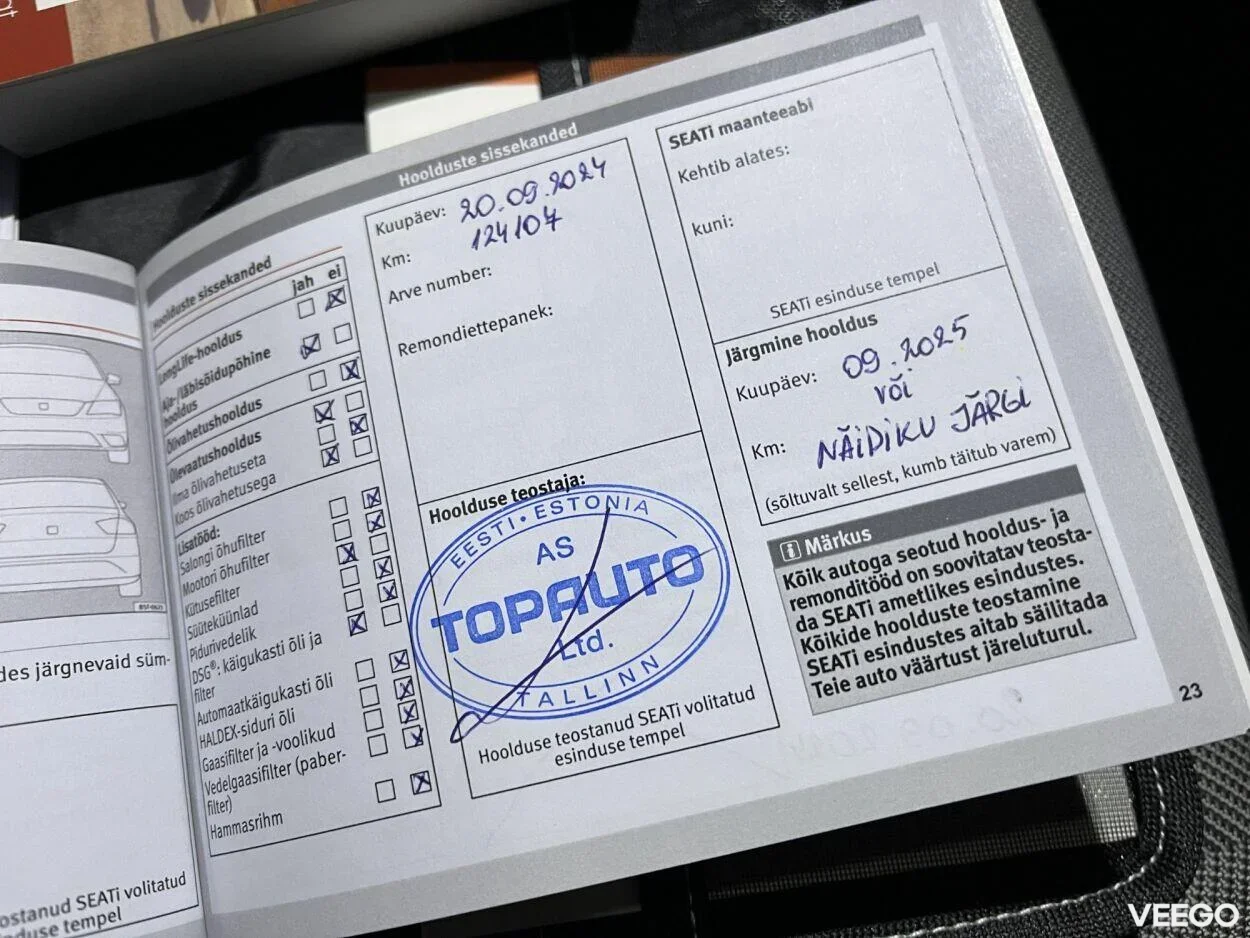 Hoolduste sissekanded
Hoolduste sissekanded
jah ei
LongLife-hooldus
Aja-/läbisõidupõhine
hooldus
Õlivahetushooldus
Ülevaatushooldus
Ilma õlivahetuseta
Koos õlivahetusega
Lisatööd:
Salongi õhufilter
Mootori õhufilter
Kütusefilter
Süüteküünlad
Pidurivedelik
DSG®: käigukasti õli ja
filter
Automaatkäigukasti õli
HALDEX-siduri õli
Gaasifilter ja -voolikud
Vedelgaasifilter (paber-
filter)
Hammasrihm
Kuupäev: 20.09.2024
Km: 124104
Arve number:
Remondiettepanek:
Hoolduse teostaja:
EESTI · ESTONIA
AS
TOPAUTO
Ltd.
TALLINN
Hoolduse teostanud SEATi volitatud
esinduse tempel
SEATi maanteeabi
Kehtib alates:
kuni:
SEATi esinduse tempel
Järgmine hooldus
Kuupäev: 09.2025
või
Km: NÄIDIKU JÄRGI
(sõltuvalt sellest, kumb täitub varem)
i Märkus
Kõik autoga seotud hooldus- ja
remonditööd on soovitatav teosta-
da SEATi ametlikes esindustes.
Kõikide hoolduste teostamine
SEATi esindustes aitab säilitada
Teie auto väärtust järelturul.
23
des järgnevaid süm-
ostanud SEATi volitatud
nduse tempel
VEEGO